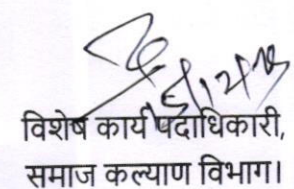 विशेष कार्य पदाधिकारी,
समाज कल्याण विभाग।